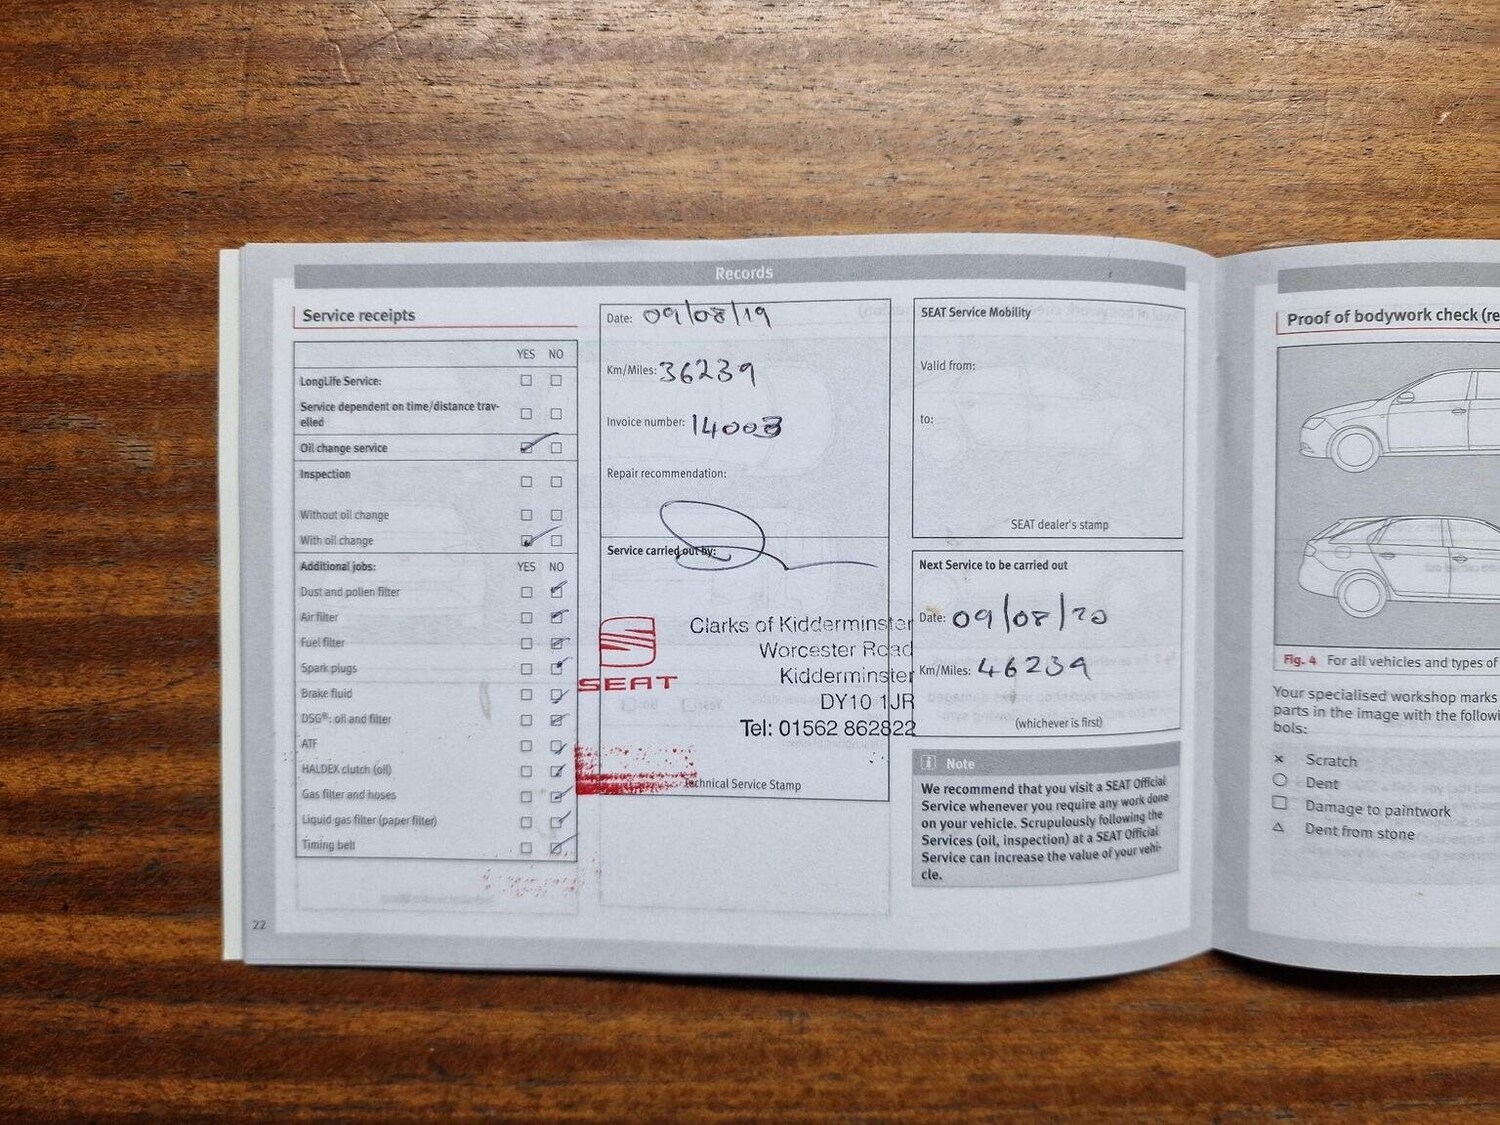 Records
Service receipts
YES NO
LongLife Service:
Service dependent on time/distance trav-
elled
Oil change service
Inspection
Without oil change
With oil change
Additional jobs: YES NO
Dust and pollen filter
Air filter
Fuel filter
Spark plugs
Brake fluid
DSG®: oil and filter
ATF
HALDEX clutch (oil)
Gas filter and hoses
Liquid gas filter (paper filter)
Timing belt
22
Date: 09/08/19
Km/Miles: 36239
Invoice number: 14003
Repair recommendation:
Service carried out by:
SEAT
Clarks of Kidderminster
Worcester Road
Kidderminster
DY10 1JR
Tel: 01562 862822
Technical Service Stamp
SEAT Service Mobility
Valid from:
to:
SEAT dealer's stamp
Next Service to be carried out
Date: 09/08/20
Km/Miles: 46239
(whichever is first)
i Note
We recommend that you visit a SEAT Official
Service whenever you require any work done
on your vehicle. Scrupulously following the
Services (oil, inspection) at a SEAT Official
Service can increase the value of your vehi-
cle.
Proof of bodywork check (re
Fig. 4 For all vehicles and types of
Your specialised workshop marks
parts in the image with the followi
bols:
× Scratch
○ Dent
□ Damage to paintwork
△ Dent from stone